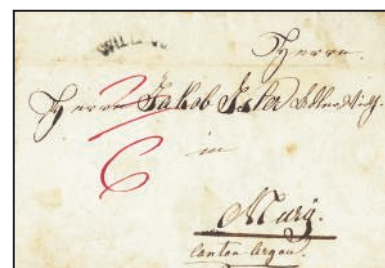 Herrn.
Herrn Jakob Isler
6
in
Mury.
Canton Argau.